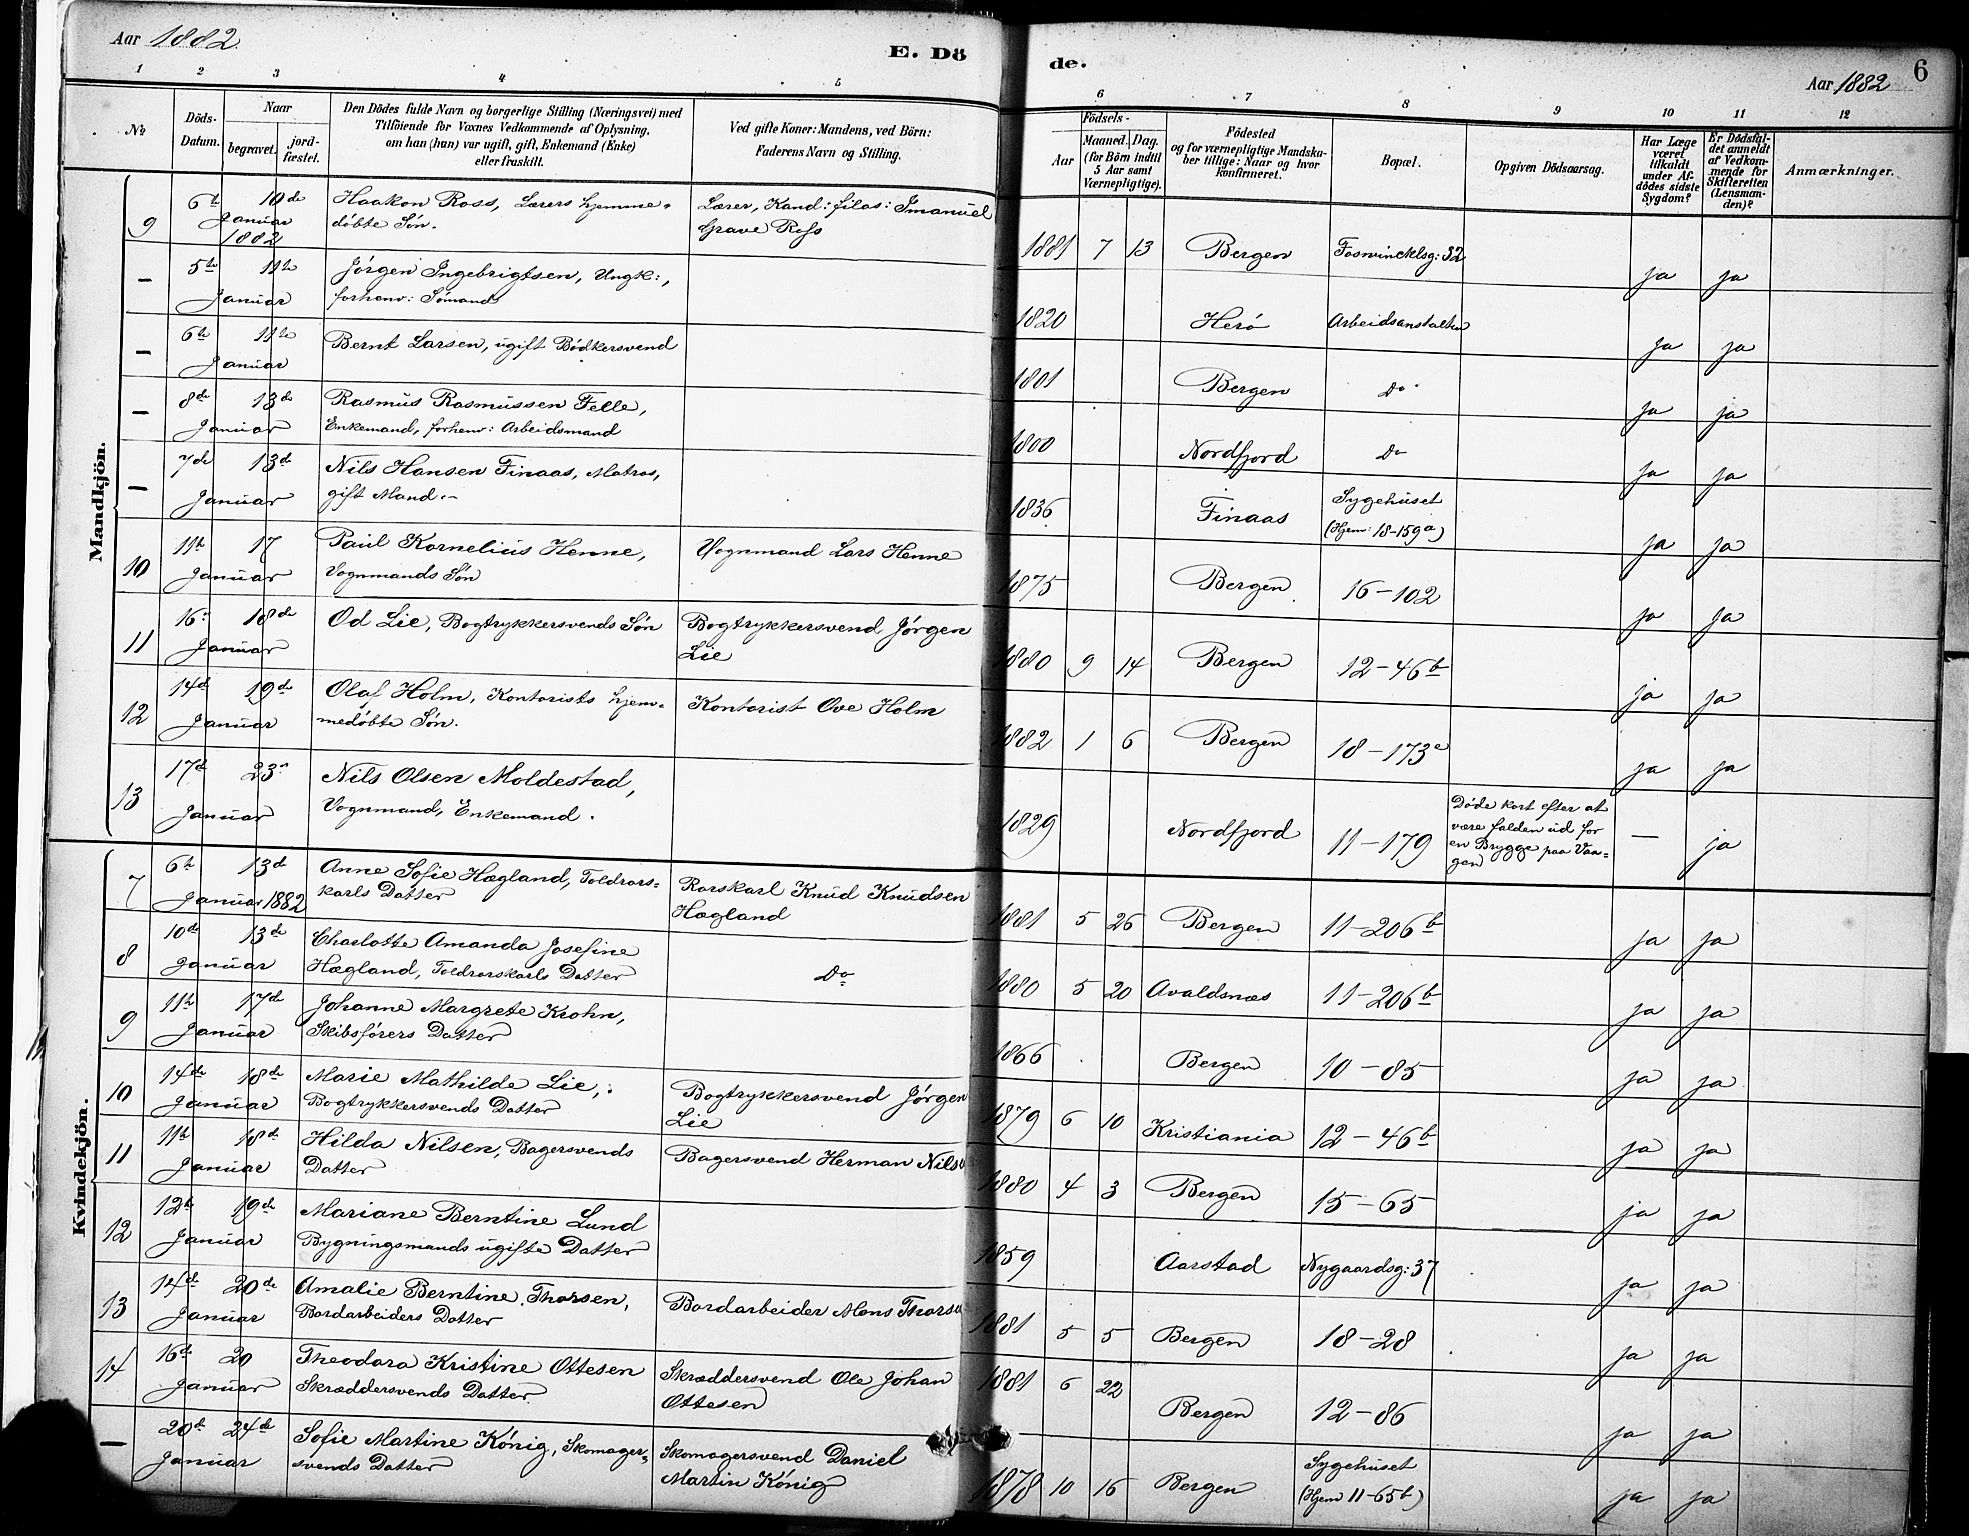 Aar 1882.
E. Dö
de.
Aar 1882
6
1 2 3 4 5 6 7 8 9 10 11 12
No
Döds-
Datum.
Naar
begravet.
jord-
fæstet.
Den Dödes fulde Navn og borgerlige Stilling (Næringsvei) med
Tilföiende for Voxnes Vedkommende af Oplysning,
om han (hun) var ugift, gift, Enkemand (Enke)
eller fraskilt.
Ved gifte Koner: Mandens, ved Börn:
Faderens Navn og Stilling.
Födsels-
Aar
Maaned. Dag.
(for Börn indtil
5 Aar samt
Værnepligtige).
Födested
og for værnepligtige Mandska-
ber tillige: Naar og hvor
konfirmeret.
Bopæl.
Opgiven Dödsaarsag.
Har Læge
været
tilkaldt
under Af-
dödes sidste
Sygdom?
Er Dödsfal-
det anmeldt
af Vedkom-
mende for
Skifteretten
(Lensman-
den)?
Anmærkninger.
Mandkjön.
9 6te 10de Haakon Ross, Lærers hjemme- Lærer, Kand: filos: Imanuel
Januar døbte Søn. Grave Ross
1882
1881 7 13 Bergen Foswincklsg: 32 ja ja
— 5te 11te Jørgen Ingebrigtsen, Ungk:,
Januar forhenv: Sømand
1820 Herø Arbeidsanstalten ja ja
— 6te 11te Bernt Larsen, ugift Bødkersvend
Januar
1801 Bergen Do ja ja
— 8de 13de Rasmus Rasmussen Felle,
Januar Enkemand, forhenv: Arbeidsmand
1800 Nordfjord Do ja ja
— 7de 13de Nils Hansen Finaas, Matros,
Januar gift Mand.-
1836 Finaas Sygehuset
(Hjem: 18-159a) ja ja
10 11te 17 Paul Kornelius Henne, Vognmand Lars Henne
Januar Vognmands Søn
1875 Bergen 16-102 ja ja
11 16. 18de Od Lie, Bogtrykkersvends Søn Bogtrykkersvend Jørgen
Januar Lie
1880 9 14 Bergen 12-46b ja ja
12 14de 19de Olaf Holm, Kontorists hjem- Kontorist Ove Holm
Januar medøbte Søn.
1882 1 6 Bergen 18-173a ja ja
13 17de 23. Nils Olsen Moldestad,
Januar Vognmand, Enkemand.
1829 Nordfjord 11-179 Døde kort efter at
være falden ud for
en Brygge paa Vaa-
gen — ja
Kvindekjön.
7 6te 13de Anne Sofie Hægland, Toldrors- Rorskarl Knud Knudsen
Januar 1882 karls Datter Hægland
1881 5 26 Bergen 11-206b ja ja
8 10de 13de Charlotte Amanda Josefine Do
Januar Hægland, Toldrorskarls Datter
1880 5 20 Avaldsnæs 11-206b ja ja
9 11te 17de Johanne Margrete Krohn,
Januar Skibsførers Datter
1866 Bergen 10-85 ja ja
10 14de 18de Marie Mathilde Lie, Bogtrykkersvend Jørgen
Januar Bogtrykkersvends Datter Lie
1879 6 10 Kristiania 12-46b ja ja
11 11te 18de Hilda Nilsen, Bagersvends Bagersvend Herman Nils
Januar Datter
1880 4 3 Bergen 15-65 ja ja
12 12te 19de Mariane Berntine Lund
Januar Bygningsmands ugifte Datter
1859 Aarstad Nygaardsg: 37 ja ja
13 14de 20de Amalie Berntine Thorsen, Bordarbeider Mons Thors
Januar Bordarbeiders Datter
1881 5 5 Bergen 18-28 ja ja
14 16de 20 Theodora Kristine Ottesen Skræddersvend Ole Johan
Januar Skræddersvends Datter. Ottesen
1881 6 22 Bergen 12-86 ja ja
— 20de 24de Sofie Martine König, Skomager- Skomagersvend Daniel
Januar svends Datter Martin König
1878 10 16 Bergen Sygehuset
(Hjem 11-65b) ja ja